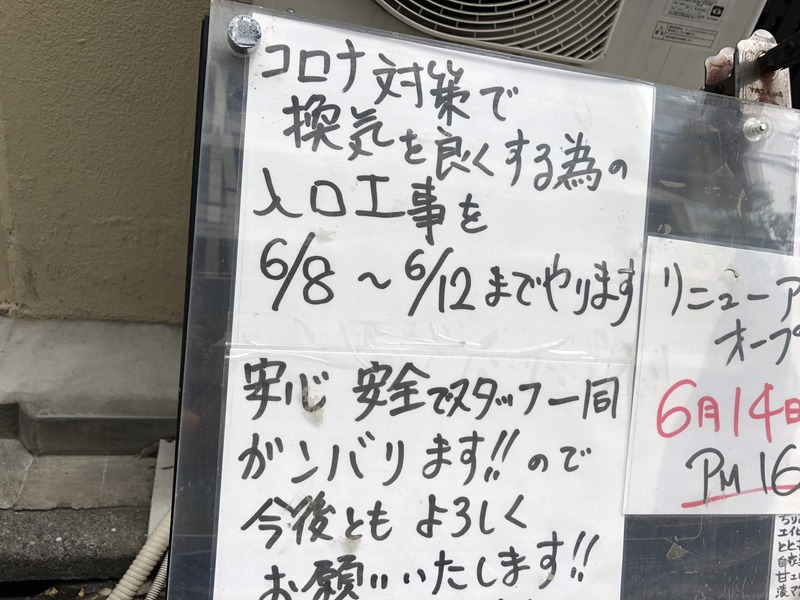 コロナ対策で
換気を良くする為の
入口工事を
6/8 ~ 6/12 までやります
安心 安全でスタッフ一同
ガンバリます!!ので
今後とも よろしく
お願いいたします!!
リニューア
オープ
6月14日
PM 16